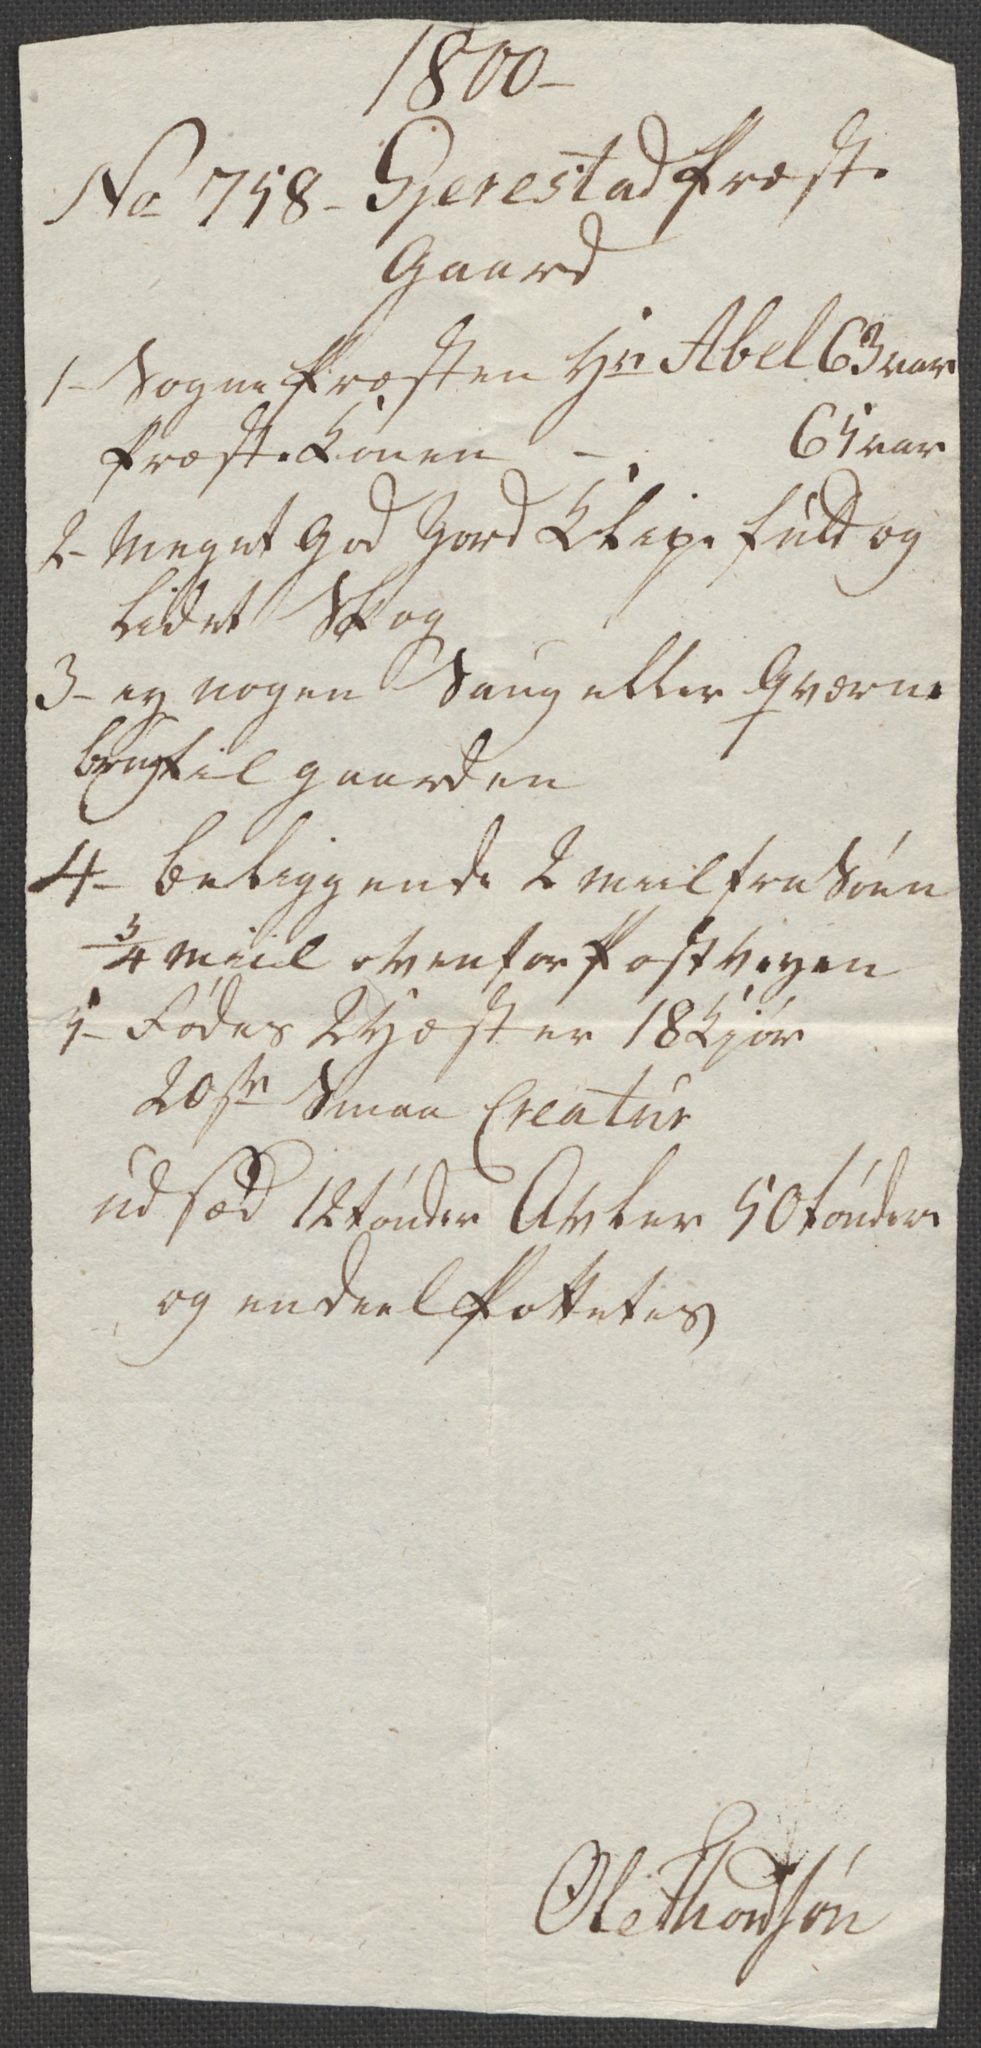 1800-
No 758- Gjerestad Præste
Gaard
1- Sogne Præsten Hr Abel 63 aar
Præste Konen - 65 aar
2- Meget God Jord Klipe fuld og
lidet Skog
3- ey nogen Saug eller Qværne
brug til gaarden
4- beliggende 2 miil fra Søen
3/4 miil ovenfor Postveyen
5- Fødes 2 Hæster 18 Kjør
20 st Smaa Creatur
ud sæd 12 tønder Avler 50 tønder
og endeel Pottetes
Ole Thordsøn